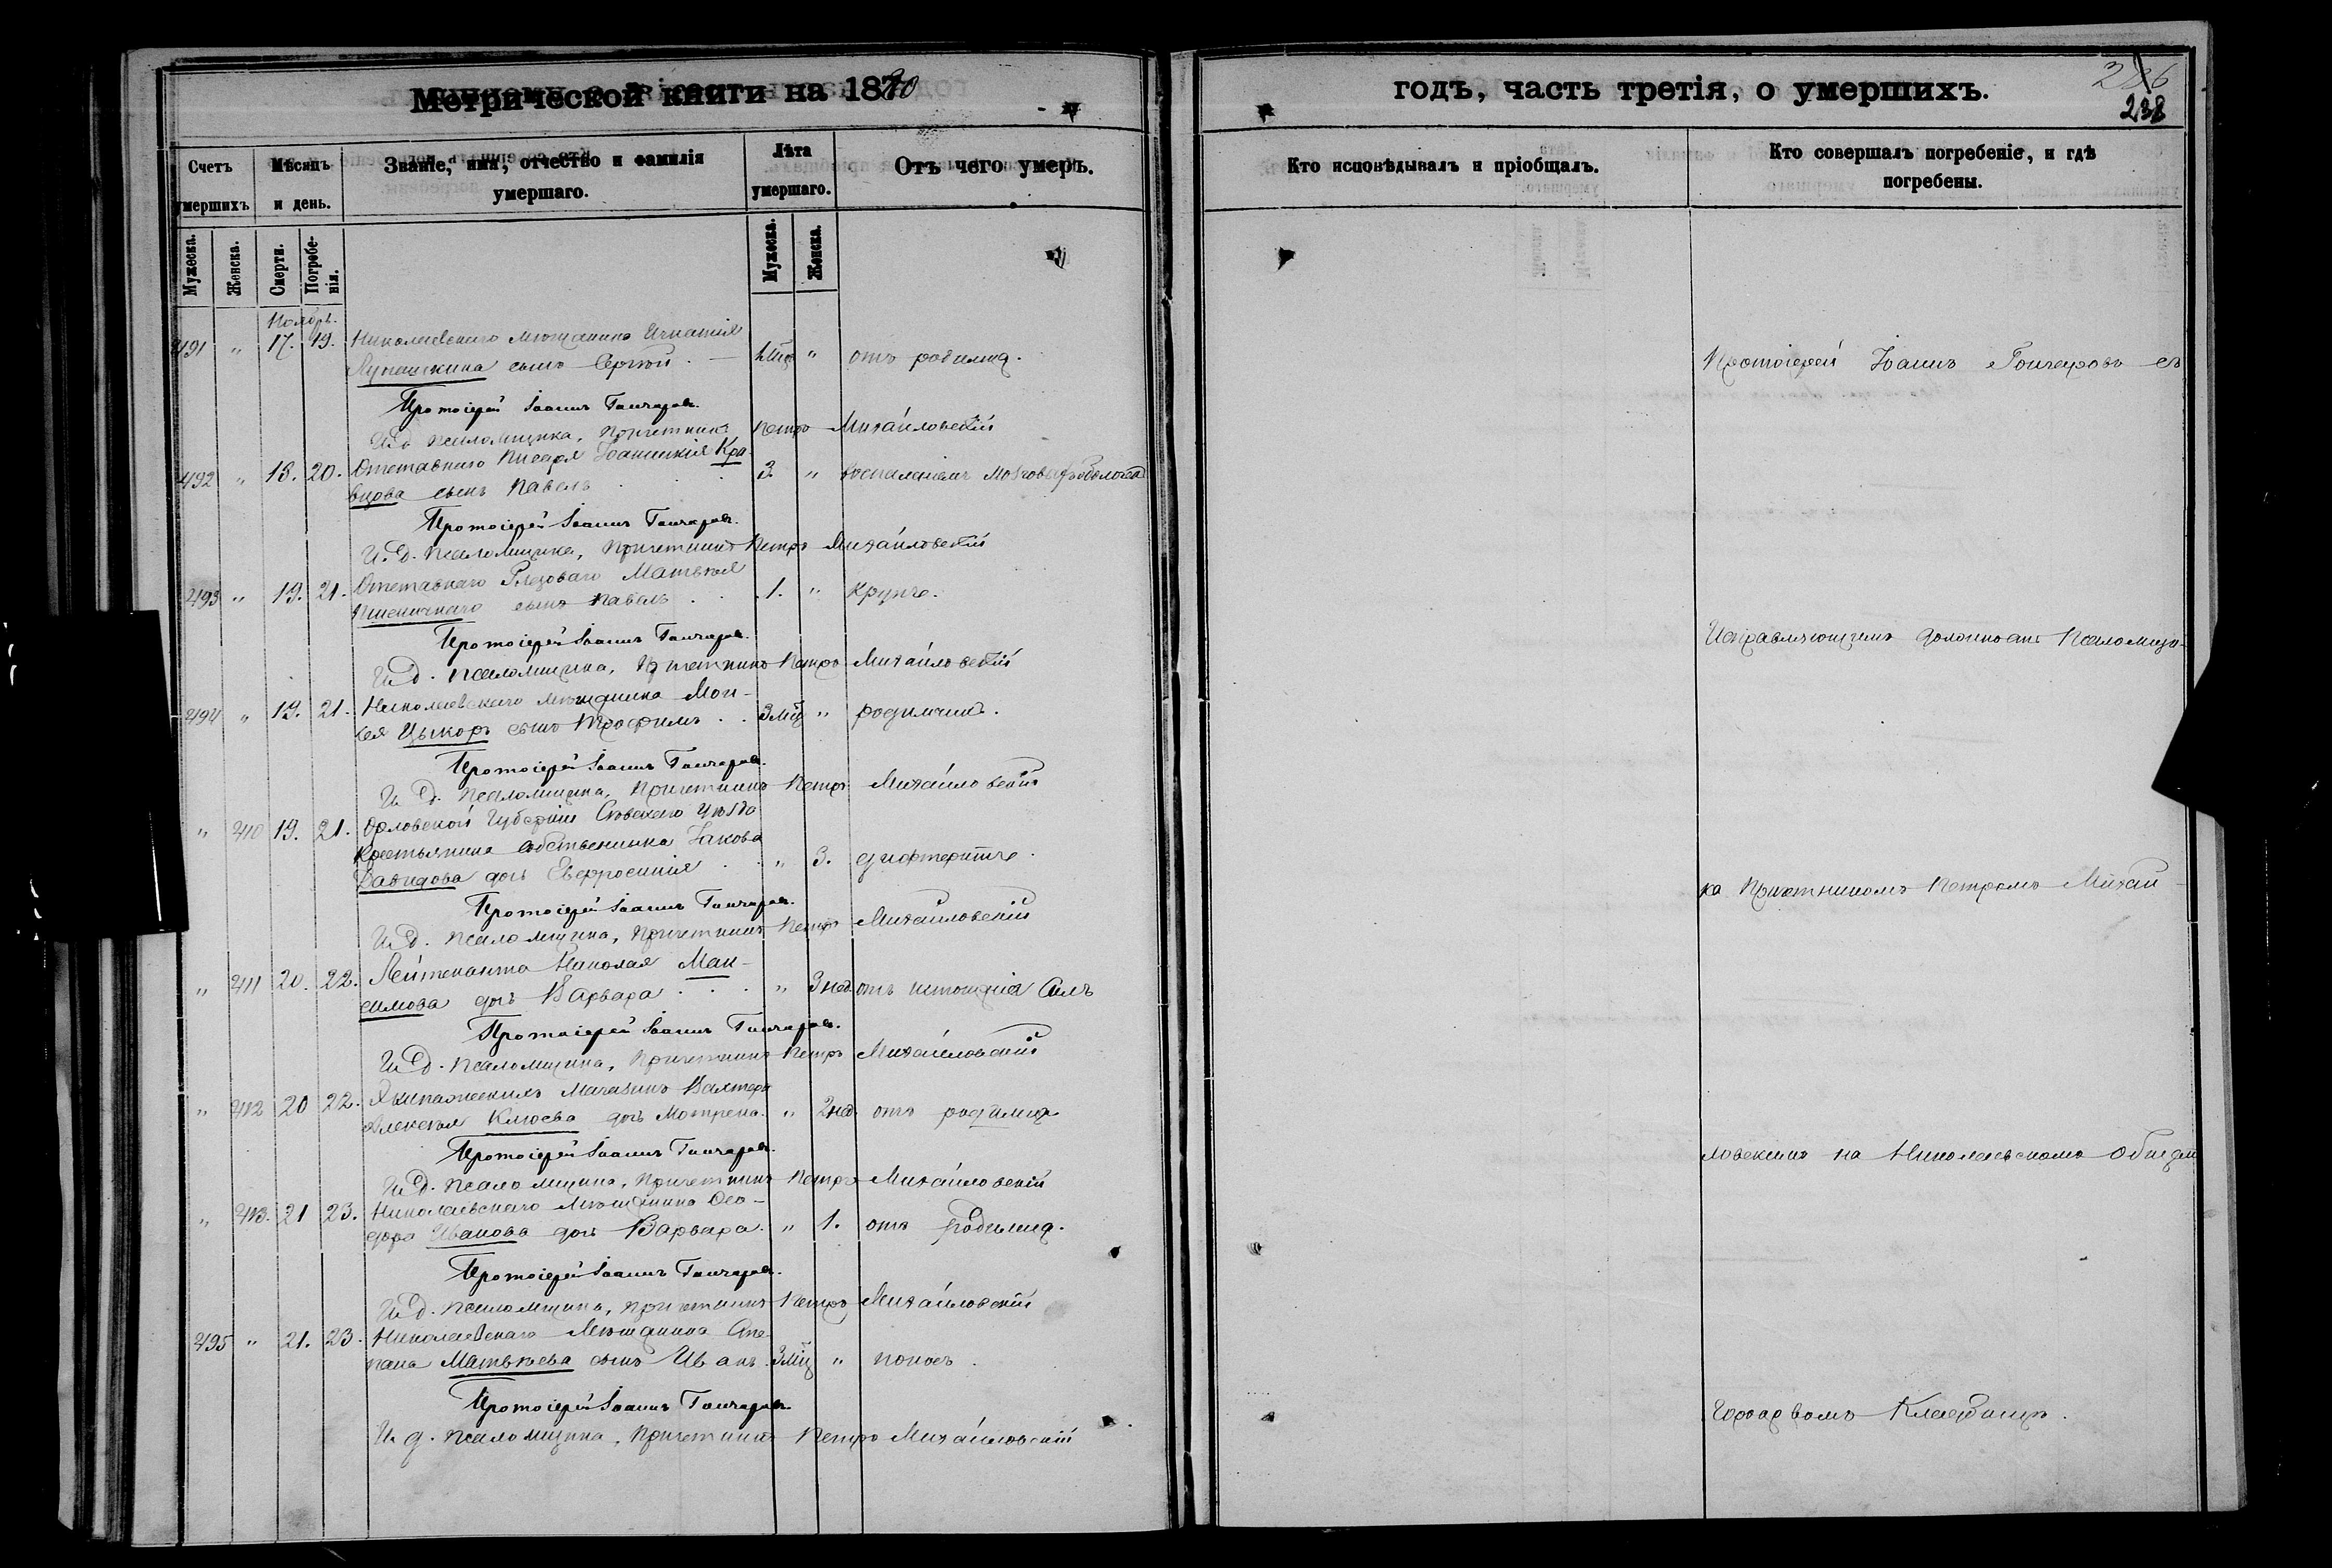 Метрической книги на 1880
годъ, часть третія, о умершихъ.
238
Счетъ умершихъ
Мѣсяцъ и день.
Званіе, имя, отчество и фамилія умершаго.
Лѣта умершаго.
Отъ чего умеръ.
Кто исповѣдывалъ и пріобщалъ.
Кто совершалъ погребеніе, и гдѣ погребены.
Мужеска.
Женска.
Смерти.
Погребенія.
Мужеска.
Женска.
Ноябрь.
491 " 17. 19. Николаевскаго мѣщанина Игнатія
сынъ Сергѣй. " отъ родимца.
Протоіерей Іоаннъ Гончаровъ.
И.д. псаломщика, Причетникъ Петръ Михайловскій
492 " 18. 20. Отставнаго писаря Іоанникія Кра-
вцова сынъ Павелъ . . . 3 " воспаленіемъ мозговыхъ оболочекъ
Протоіерей Іоаннъ Гончаровъ.
И.д. псаломщика, Причетникъ Петръ Михайловскій
493 " 19. 21. Отставнаго Матвѣя
Пшеничнаго сынъ Павелъ . . 1. " крупъ.
Протоіерей Іоаннъ Гончаровъ.
И.д. псаломщика, Причетникъ Петръ Михайловскій
494 " 19. 21. Николаевскаго мѣщанина Мои-
сея Цыкоръ сынъ Трофимъ . . 3 мѣц " родимчикъ.
Протоіерей Іоаннъ Гончаровъ.
И.д. псаломщика, Причетникъ Петръ Михайловскій
" 410 19. 21. Орловской Губерніи Сѣвскаго уѣзда
Крестьянина собственника Іакова
Давидова дочь Евфросинія . . " 3. дифтеритъ.
Протоіерей Іоаннъ Гончаровъ.
И.д. псаломщика, Причетникъ Петръ Михайловскій
" 411 20. 22. Лейтенанта Николая Мак-
симова дочь Варвара . . . " 3 нед. отъ истощенія силъ
Протоіерей Іоаннъ Гончаровъ.
И.д. псаломщика, Причетникъ Петръ Михайловскій
" 412 20 22. Экипажескихъ Магазинъ Вахтера
Алексѣя Клюева дочь Мотрена. " 2 нед. отъ родимца
Протоіерей Іоаннъ Гончаровъ.
И.д. псаломщика, Причетникъ Петръ Михайловскій
" 413. 21 23. Николаевскаго мѣщанина Ѳео-
дора Иванова дочь Варвара. " 1. отъ родимца.
Протоіерей Іоаннъ Гончаровъ.
И.д. псаломщика, Причетникъ Петръ Михайловскій
495 " 21. 23. Николаевскаго Мѣщанина Сте-
пана Матвѣева сынъ Иванъ. 3 мѣц " поносъ.
Протоіерей Іоаннъ Гончаровъ.
И.д. псаломщика, Причетникъ Петръ Михайловскій
Протоіерей Іоаннъ Гончаровъ съ
Исправляющимъ должность Псаломщи-
ка Причетникомъ Петромъ Михай-
ловскимъ на Николаевскомъ
Кладбищѣ.